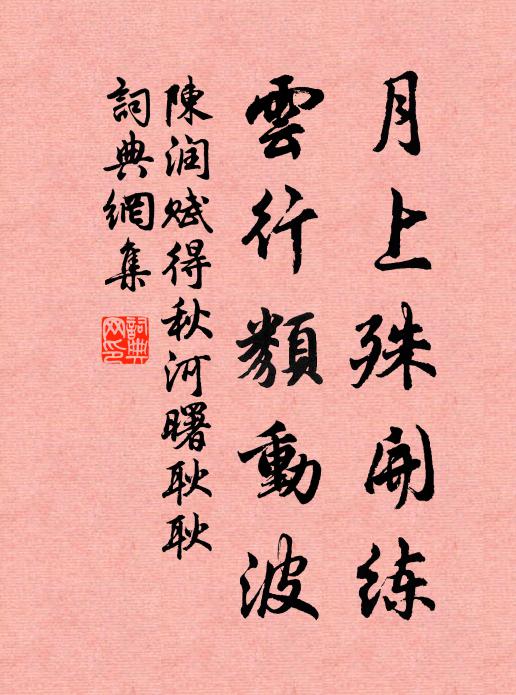 月上殊開练
雲行類動波
陳润赋得秋河曙耿耿
詞典網集
詞典
网印